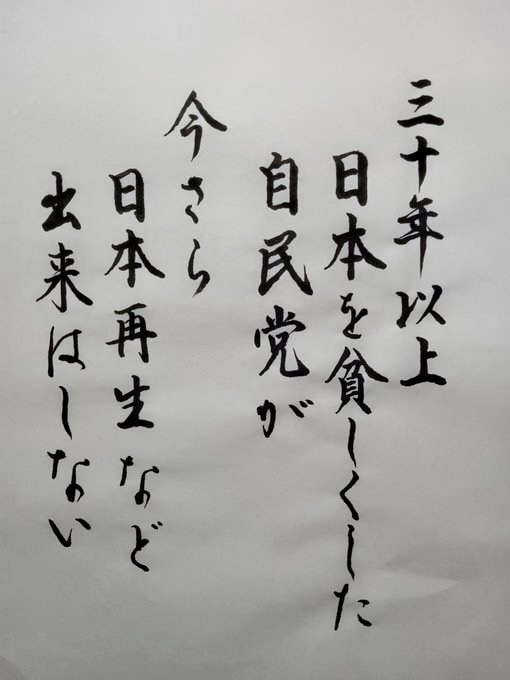 三十年以上
日本を貧しくした
自民党が
今さら
日本再生など
出来はしない